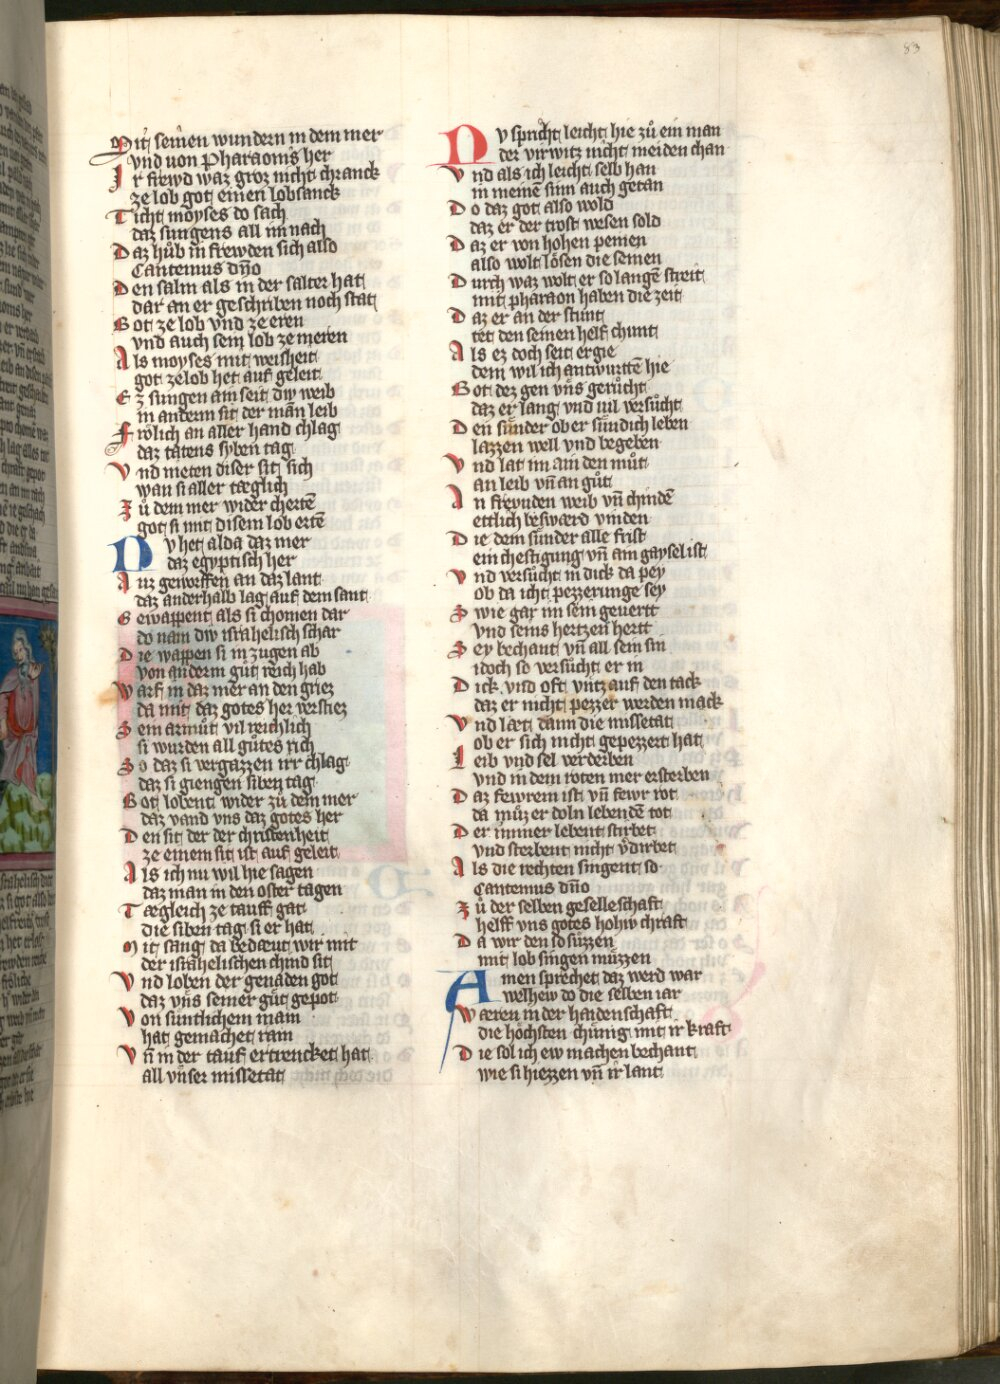 83
Mit seinen wundern in dem mer
vnd von Pharaonis her
Ir frewd waz groz nicht chranck
ze lob got einen lobsanck
Ticht moyses do sach
daz sungens all im nach
Daz hůb in frewden sich also
Cantemus dño
Den salm als in der salter hat
dar an er geschriben noch stat
Got ze lob vnd ze eren
vnd auch sein lob ze meren
Als moyses mit weisheit
got ze lob het auf geleit
Ez sungen ain seit diw weib
in anderm sit der mãn leib
Frölich an aller hand chlag
daz tatens syben tag
Vnd nieten diser sit sich
wan si aller tæglich
Zů dem mer wider chertẽ
got si mit disem lob ertẽ
Nv het alda daz mer
daz egyptisch her
Auz geworffen an daz lant
daz anderhalb lag auf dem sant
Gewappent als si chomen dar
do nam diw israhelisch schar
Die wappen si in zugen ab
von anderm gůt reich hab
Warf in daz mer an den griez
da mit daz gotes her verstiez
Sein armůt vil reichlich
si wurden all gůtes rich
So daz si vergazzen irr chlag
daz si giengen siben tag
Got lobent wider zů dem mer
daz vand vns daz gotes her
Den sit der der christenheit
ze einem sit ist auf geleit
Als ich nu wil hie sagen
daz man in den oster tagen
Tægleich ze tauff gat
die siben tag si er hat
Mit sang da bedæut wir mit
der israhelischen chind sit
Vnd loben der genaden got
daz vñs seiner gůt gepot
Von süntlichem mam
hat gemachet ram
Vñ in der tauf ertrencket hat
all vnser missetat
Nv spricht leicht hie zů ein man
der virwitz nicht meiden chan
Vnd als ich leicht selb han
in meinẽ sinn auch getan
Do daz got also wold
daz er der trost wesen sold
Daz er von hohen peinen
also wolt lösen die seinen
Durch waz wolt er so langẽ streit
mit pharaon haben die zeit
Daz er an der stunt
tet den seinen helf chunt
Als ez doch seit ergie
dem wil ich antwurttẽ hie
Got dez gen vñs gerůcht
daz er lang vnd vil versůcht
Den sünder ob er sündich leben
lazzen well vnd begeben
Vnd lat im ain den můt
an leib vñ an gůt
An frevnden weib vñ chindẽ
ettlich beswærd vinden
Die dem sünder alle frist
ein chestigung vñ ain gaysel ist
Vnd versůcht in dick da pey
ob da icht pezzerunge sey
Swie gar im sein gevertt
vnd seins hertzen hertt
Sey bechant vñ all sein sin
idoch so versůcht er in
Dick vnd oft vntz auf den tack
daz er nicht pezzer werden mack
Vnd læt dann die missetat
ob er sich nicht gepezzert hat
Leib vnd sel verderben
vnd in dem roten mer ersterben
Daz fewrein ist vñ fewr rot
da můz er doln lebendẽ tot
Der immer lebent stirbet
vnd sterbent nicht v̉dirbet
Als die rechten singent so
Cantemus dño
Zů der selben geselleschaft
helff vns gotes hohiw chraft
Da wir den so sůzzen
mit lob singen můzzen
Amen sprechet daz werd war
welhew do die selben iar
Wæren in der haidenschaft
die höchsten chünig mit ir kraft
Die sol ich ew machen bechant
wie si hiezzen vñ ir lant